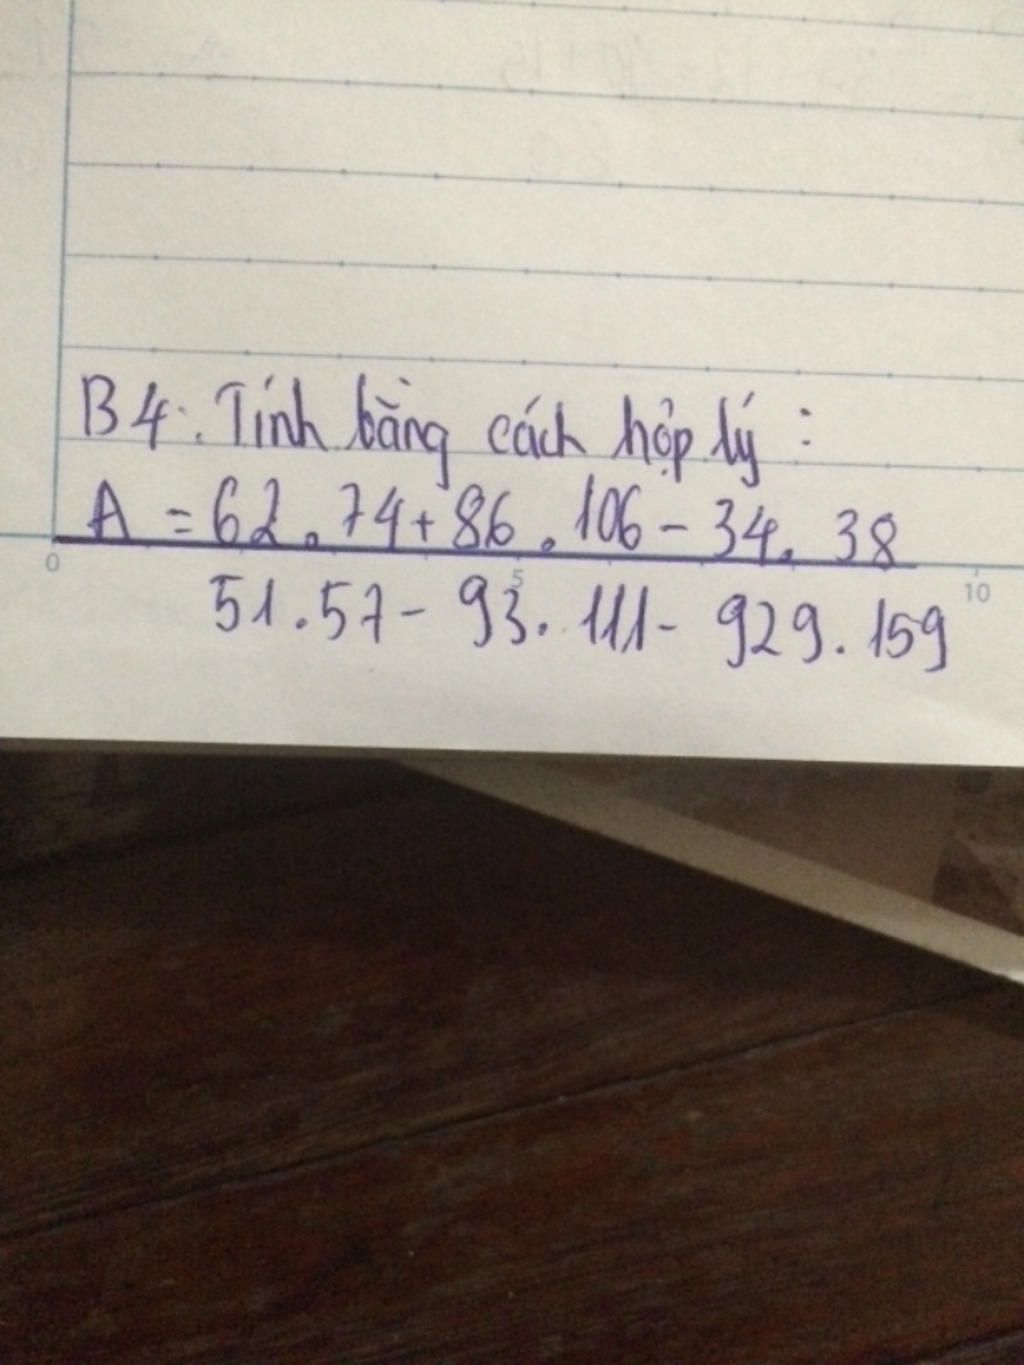 B4. Tính bằng cách hợp lý :
A = 62.74+86.106-34.38
0 5 10
51.57- 93.111- 929.159